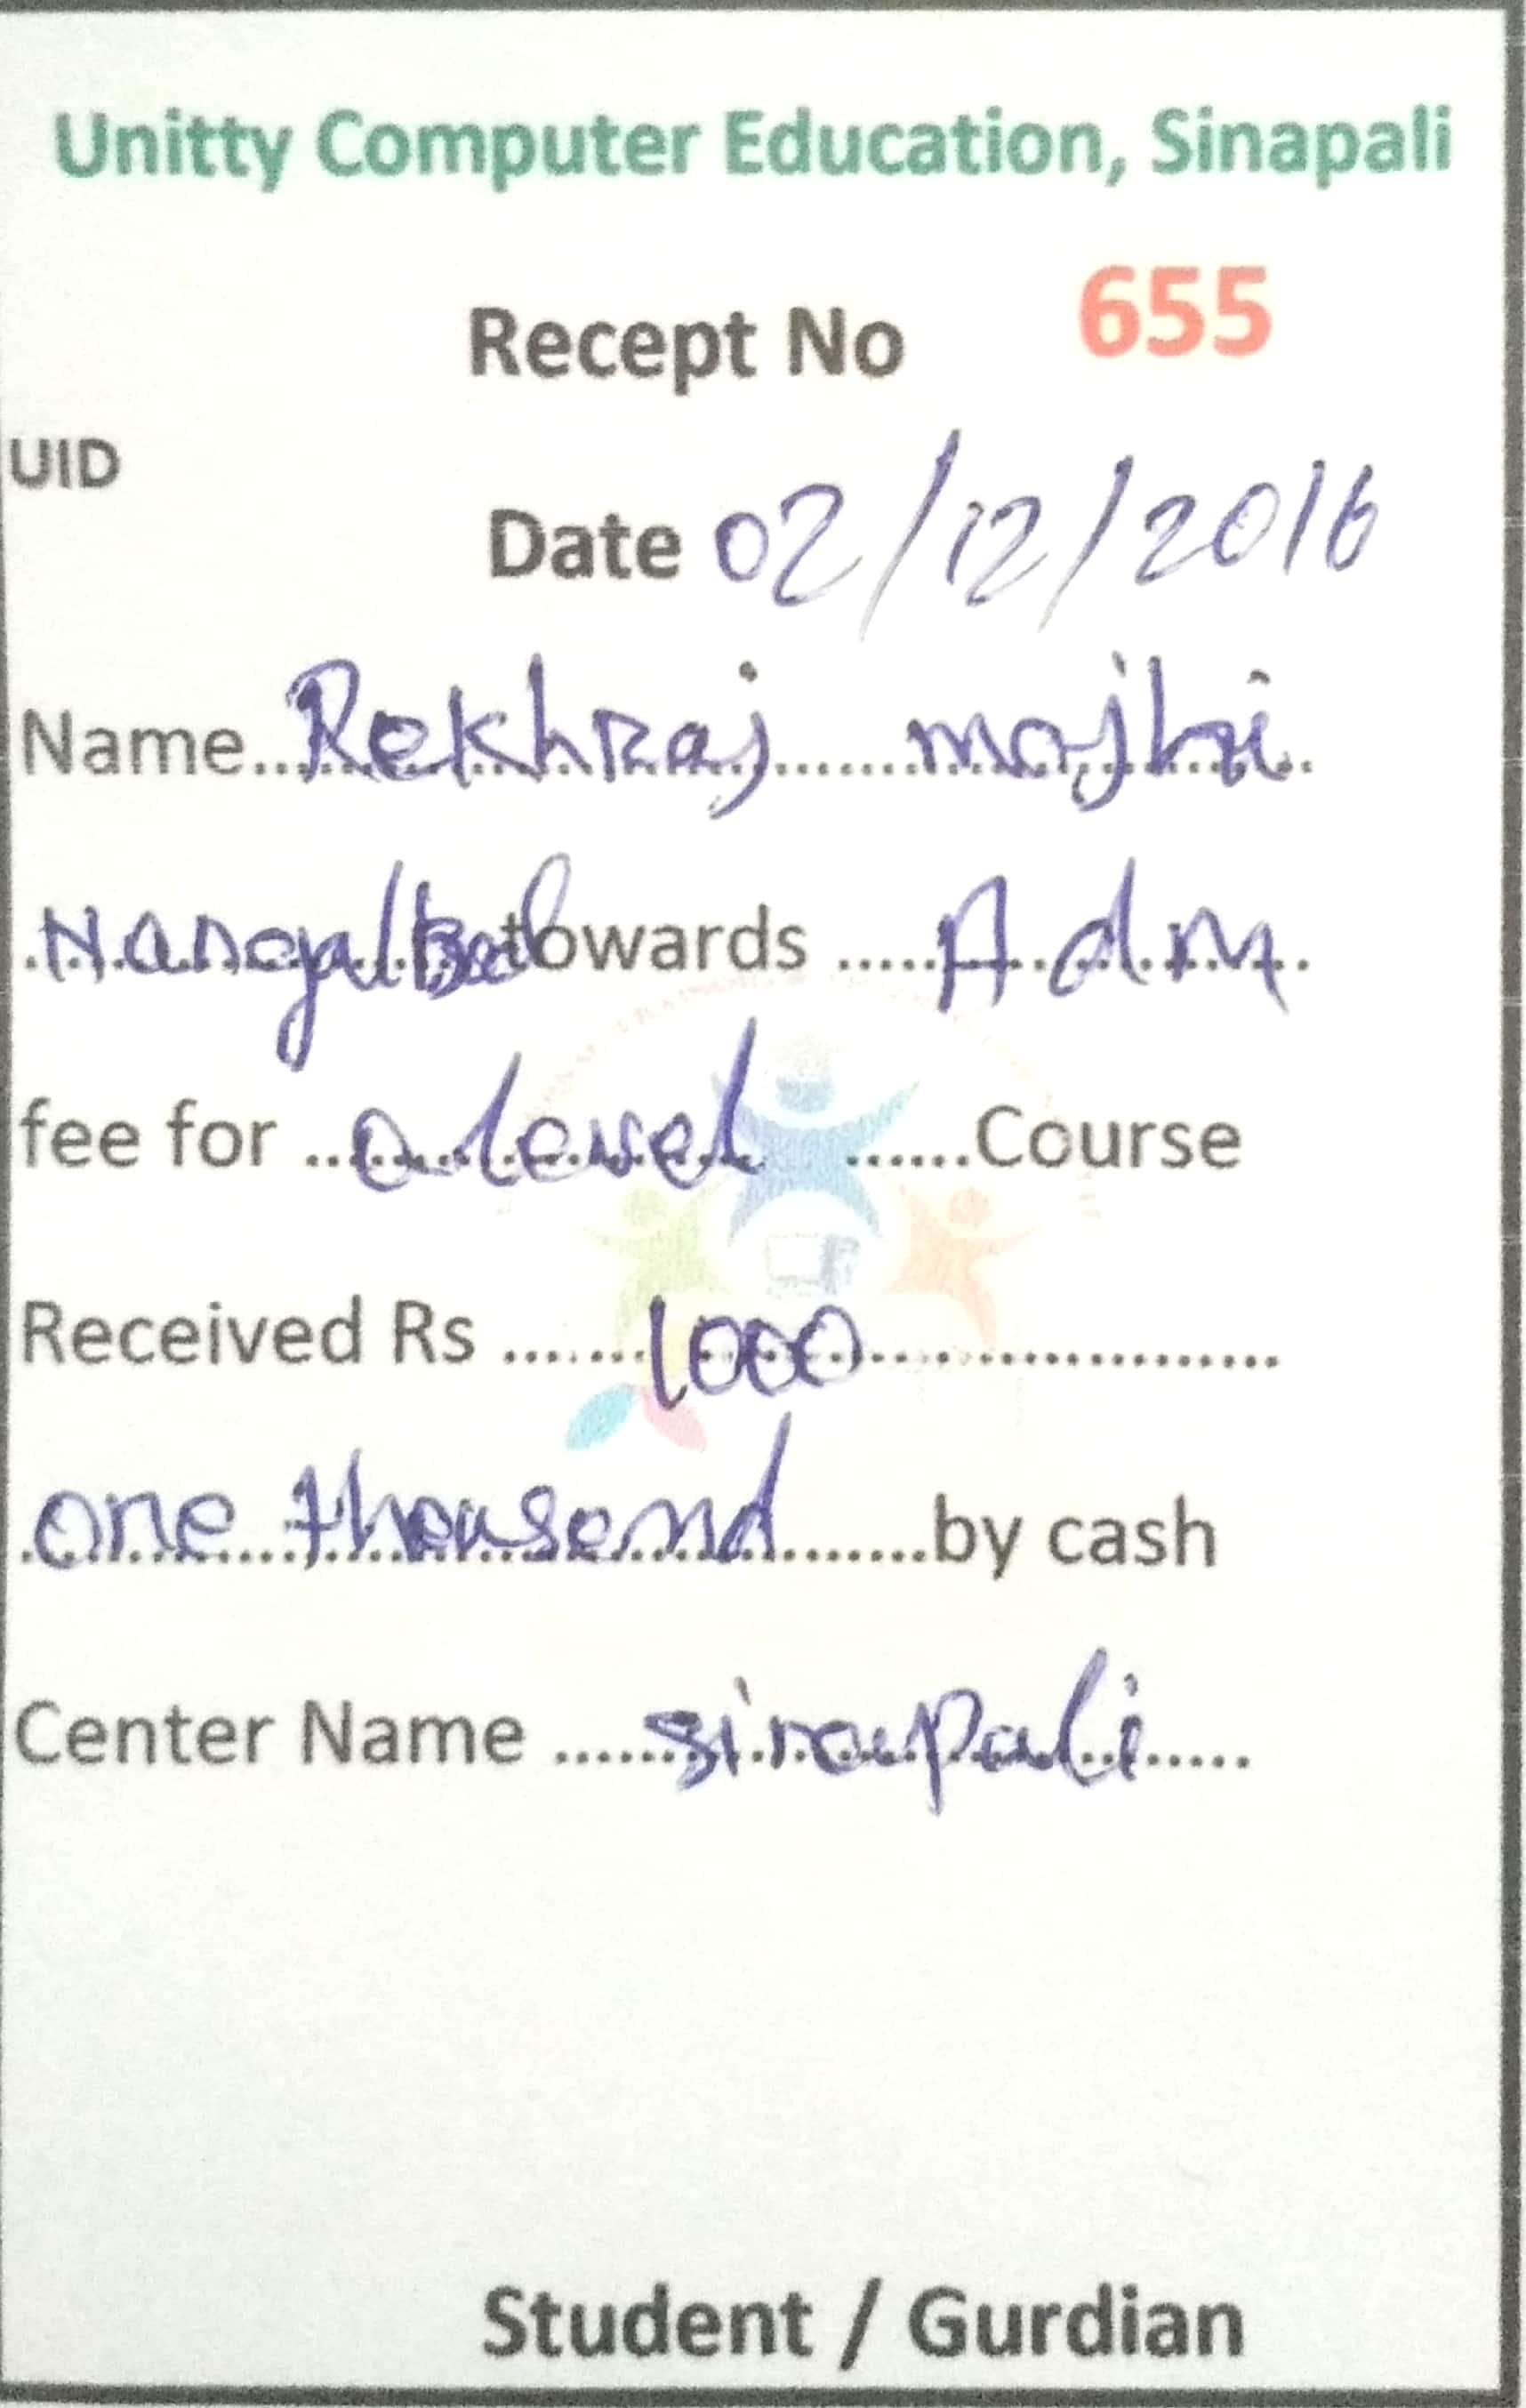 Unitty Computer Education, Sinapali
Recept No 655
UID
Date 02/12/2016
Name Rekhraj majhi
towards Adm
fee for o level Course
Received Rs 1000
one thousand by cash
Center Name sinapali
Student / Gurdian